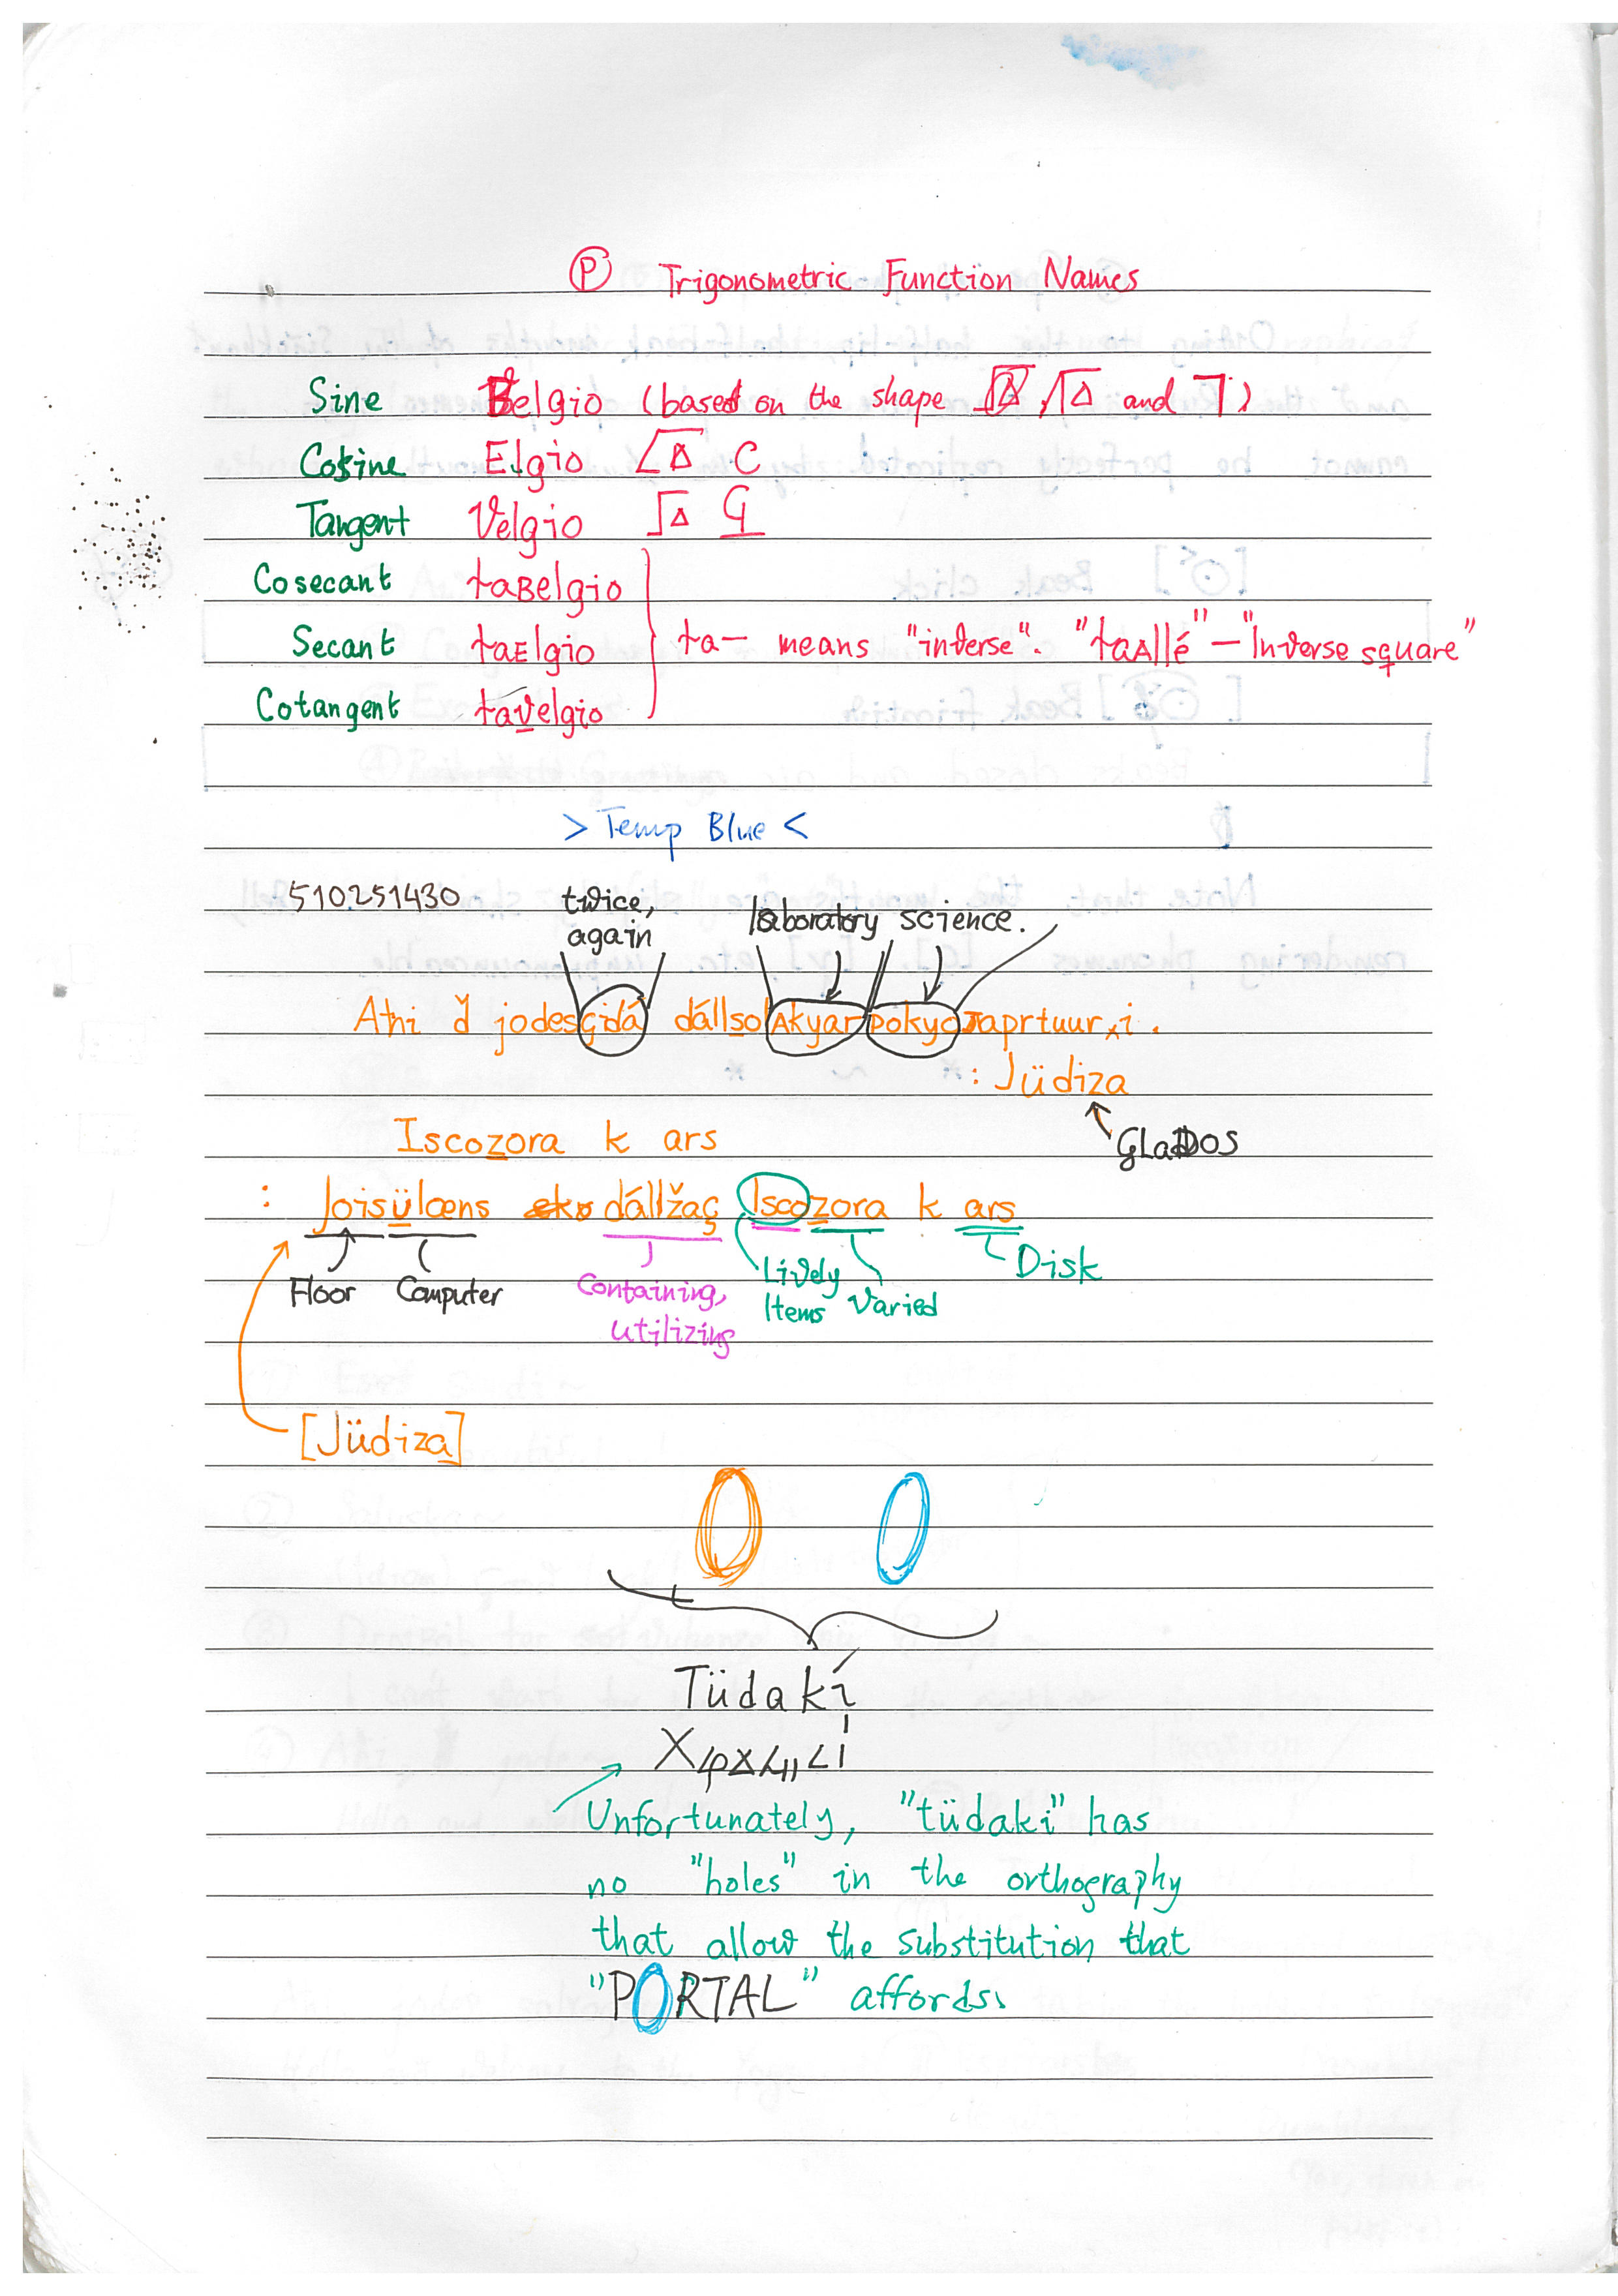 Ⓟ Trigonometric Function Names
Sine Belgio (based on the shape and ㄱ)
Cosine Elgio C
Tangent Velgio
Cosecant taBelgio
Secant taElgio ta- means "inverse". "taAllé" – "Inverse square"
Cotangent taVelgio
> Temp Blue <
510251430 twice, laboratory science.
again
Ahi ď jodesçidá dállsolAkyarpokyo
: Jüdiza
Iscozora k ars
GLaDOS
: Joisülœns dállžaç Iscozora k ars
Floor Computer Containing, Lively Varied Disk
utilizing Items
[Jüdiza]
Tüdakí
Unfortunately, "tüdakí" has
no "holes" in the orthography
that allow the substitution that
"PORTAL" affords.